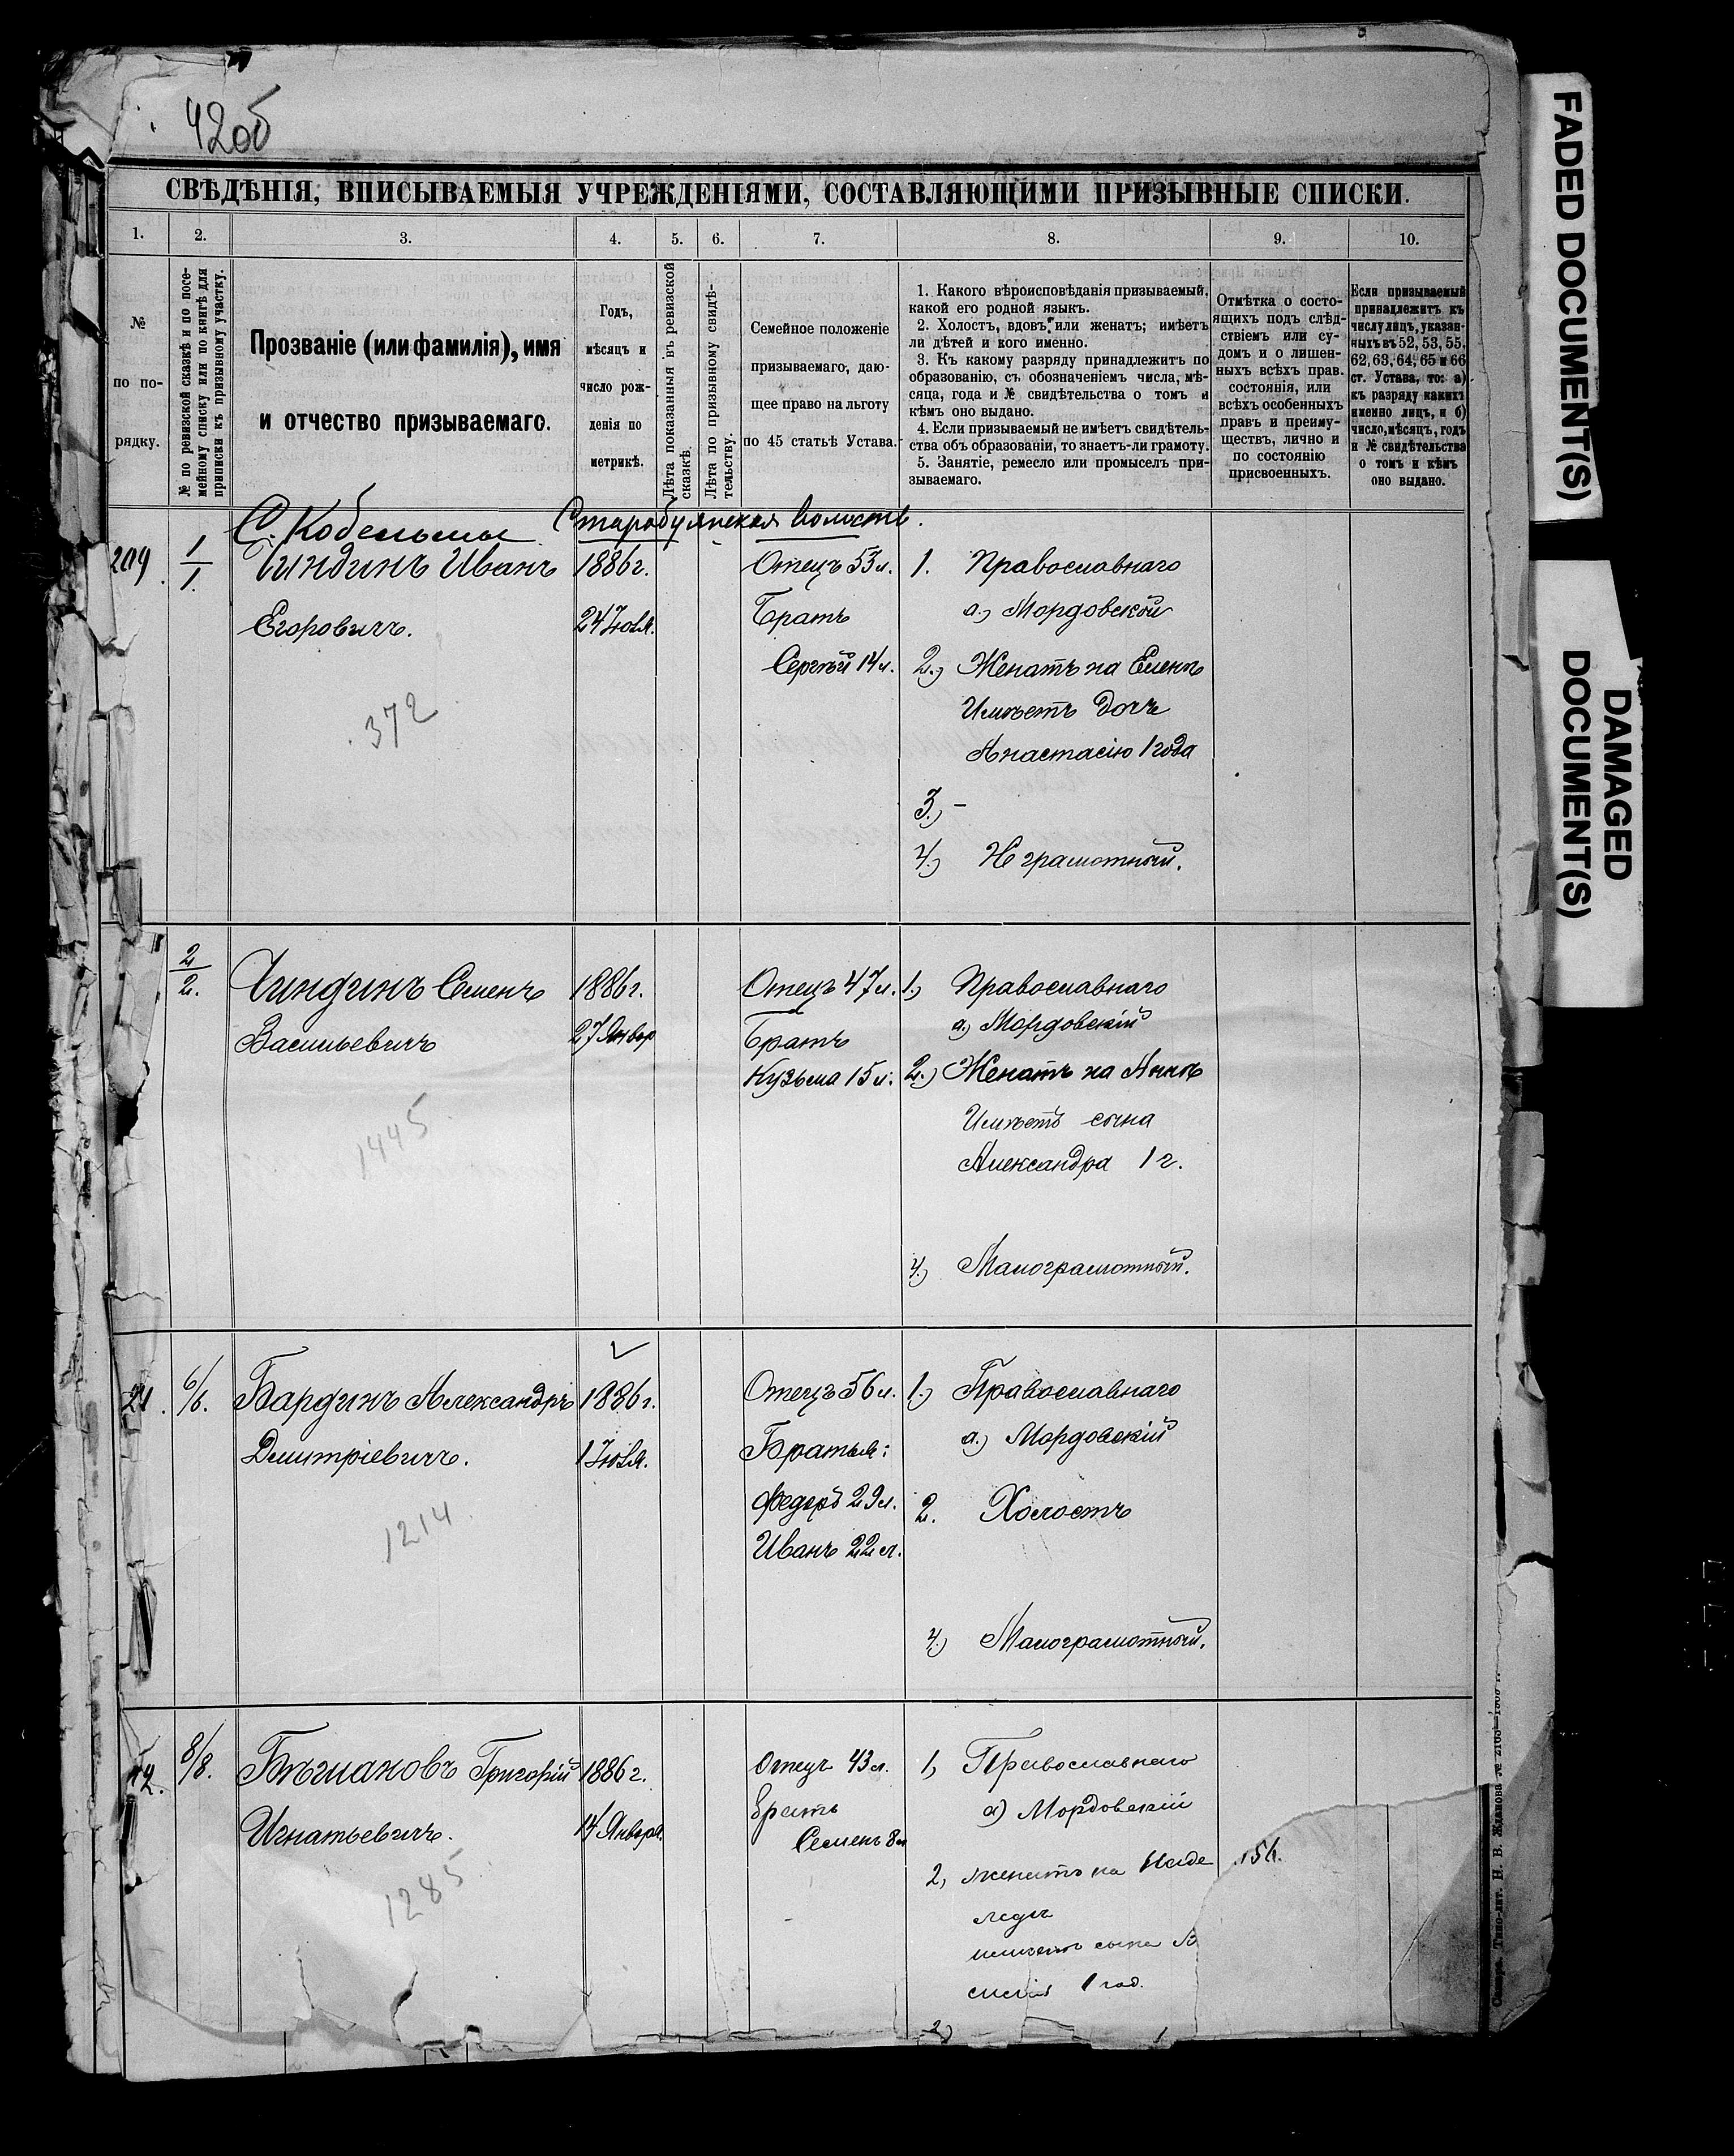 42об
СВѢДѢНІЯ, ВПИСЫВАЕМЫЯ УЧРЕЖДЕНІЯМИ, СОСТАВЛЯЮЩИМИ ПРИЗЫВНЫЕ СПИСКИ.
1. 2. 3. 4. 5. 6. 7. 8. 9. 10.
№
по по-
рядку.
№ по ревизской сказкѣ и по посе-
мейному списку или по книгѣ для
приписки къ призывному участку.
Прозваніе (или фамилія), имя
и отчество призываемаго.
Годъ,
мѣсяцъ и
число рож-
денія по
метрикѣ.
Лѣта показанныя въ ревизской
сказкѣ.
Лѣта по призывному свидѣ-
тельству.
Семейное положеніе
призываемаго, даю-
щее право на льготу
по 45 статьѣ Устава.
1. Какого вѣроисповѣданія призываемый,
какой его родной языкъ.
2. Холостъ, вдовъ или женатъ; имѣетъ
ли дѣтей и кого именно.
3. Къ какому разряду принадлежитъ по
образованію, съ обозначеніемъ числа, мѣ-
сяца, года и № свидѣтельства о томъ и
кѣмъ оно выдано.
4. Если призываемый не имѣетъ свидѣтель-
ства объ образованіи, то знаетъ-ли грамоту.
5. Занятіе, ремесло или промыселъ при-
зываемаго.
Отмѣтка о состо-
ящихъ подъ слѣд-
ствіемъ или су-
домъ и о лишен-
ныхъ всѣхъ прав.
состоянія, или
всѣхъ особенныхъ
правъ и преиму-
ществъ, лично и
по состоянію
присвоенныхъ.
Если призываемый
принадлежитъ къ
числу лицъ, указан-
ныхъ въ 52, 53, 55,
62, 63, 64, 65 и 66
ст. Устава, то: а)
къ разряду какихъ
именно лицъ, и б)
число, мѣсяцъ, годъ
и № свидѣтельства
о томъ и кѣмъ
оно выдано.
С. Кобельмы Старобуянская волость.
209. 1/1. Чиндинъ Иванъ 1886 г. Отецъ 53 л. 1. Православнаго
Егоровичъ. 24 Іюля. Братъ а.) Мордовской
Сергѣй 14 л. 2.) Женатъ на Еленѣ
Имѣетъ дочь
Анастасію 1 года
372
3.) –
4.) Неграмотный.
2/2. Чиндинъ Семенъ 1886 г. Отецъ 47 л. 1.) Православнаго
Васильевичъ 27 Янвор Братъ а.) Мордовскій
Кузьма 15 л. 2.) Женатъ на Аннѣ
Имѣетъ сына
Александра 1 г.
1445
4.) Малограмотный.
21. 6/6. Бардинъ Александръ 1886 г. Отецъ 56 л. 1.) Православнаго
Дмитріевичъ. 1 Іюля. Братья: а.) Мордовскій
Федоръ 29 л. 2. Холостъ
Иванъ 22 л.
1214
4.) Малограмотный.
12. 8/8. Григорій 1886 г. Отецъ 43 л. 1, Православнаго
Игнатьевичъ. 14 Января. Братъ а) Мордовскій
Семенъ 8 л
2, женатъ на Наде
имѣетъ сына
1 год.
1285
156.
FADED DOCUMENT(S)
DAMAGED
DOCUMENT(S)